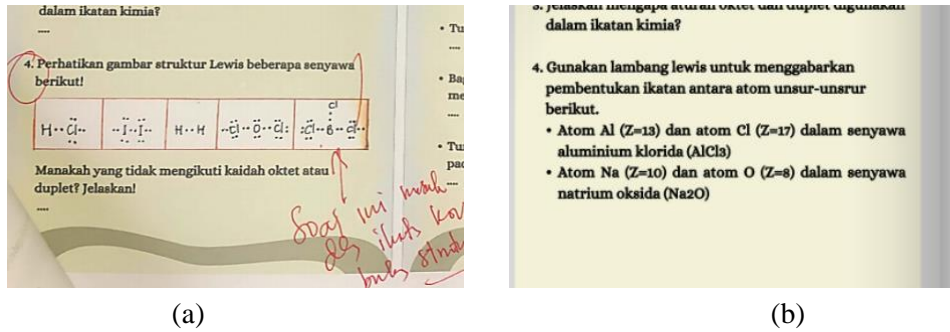 dalam ikatan kimia?
....
4. Perhatikan gambar struktur Lewis beberapa senyawa
berikut!
H ·· Cl ··
·· I ·· I ··
H ·· H
·· Cl ·· O ·· Cl :
Cl
: Cl ·· B ·· Cl ··
Manakah yang tidak mengikuti kaidah oktet atau
duplet? Jelaskan!
....
Soal ini masuk
ikats kov
buks struk
• Tu
....
• Ba
me
....
• Tu
pa
....
(a)
3. Jelaskan mengapa aturan oktet dan duplet digunakan
dalam ikatan kimia?
4. Gunakan lambang lewis untuk menggabarkan
pembentukan ikatan antara atom unsur-unsrur
berikut.
• Atom Al (Z=13) dan atom Cl (Z=17) dalam senyawa
aluminium klorida (AlCl3)
• Atom Na (Z=10) dan atom O (Z=8) dalam senyawa
natrium oksida (Na2O)
(b)